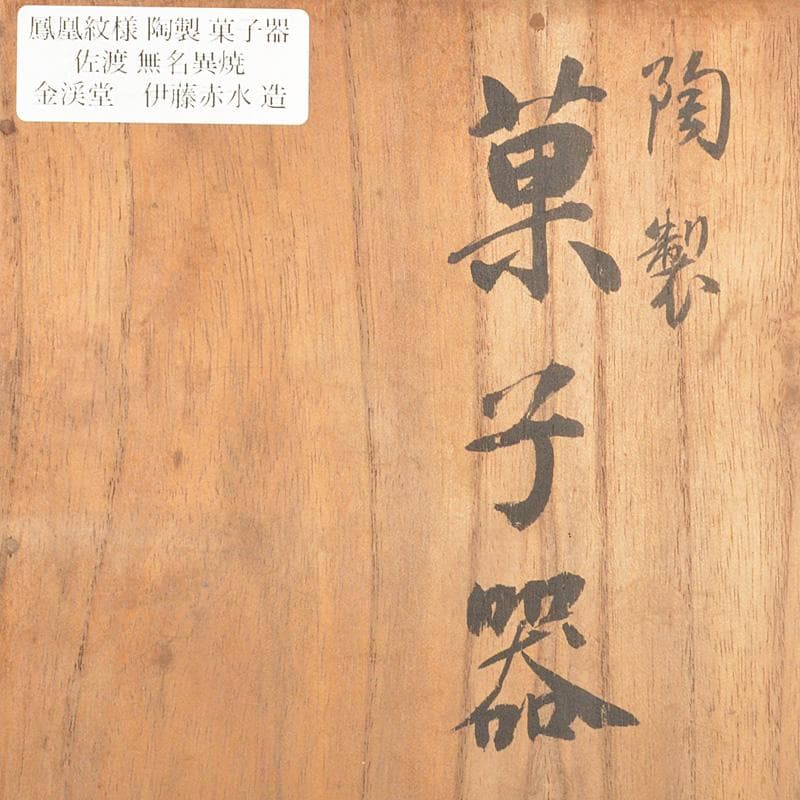 鳳凰紋様 陶製 菓子器
佐渡 無名異焼
金渓堂 伊藤赤水 造
陶製
菓子器